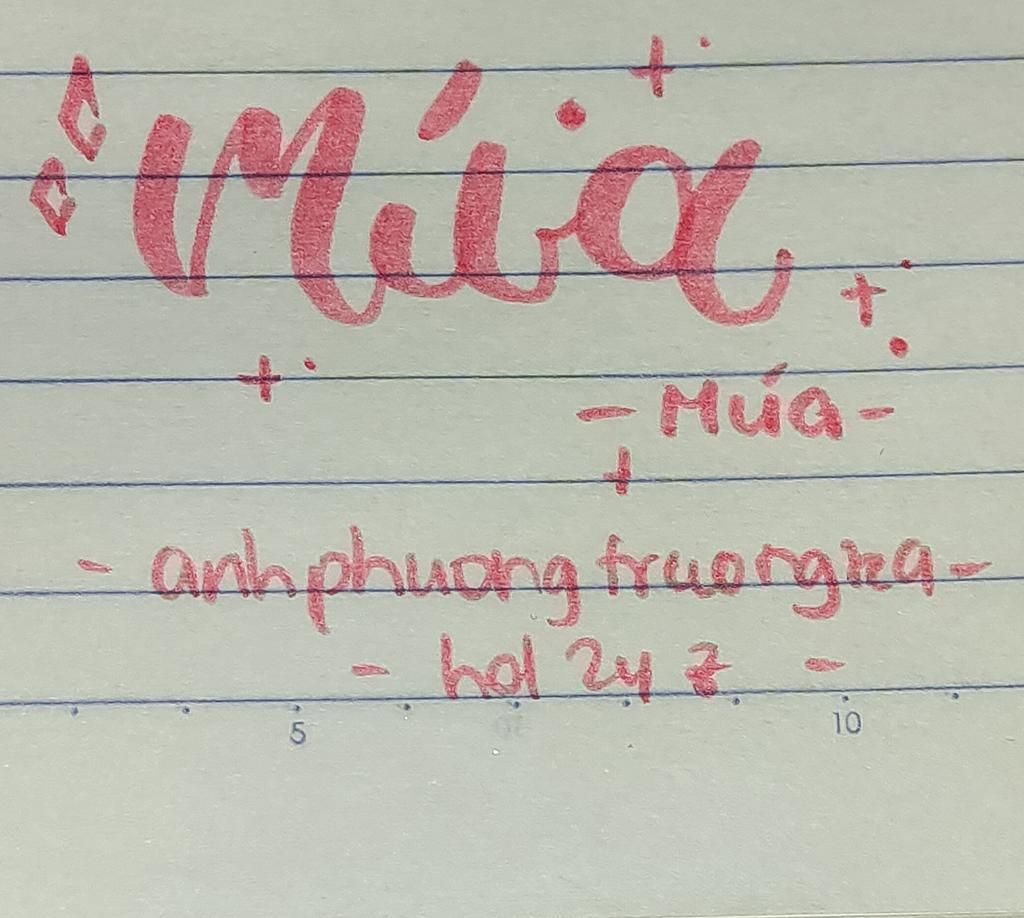 Múa
- Múa -
- anhphuongtruongka -
- hol 24 z -
5 10